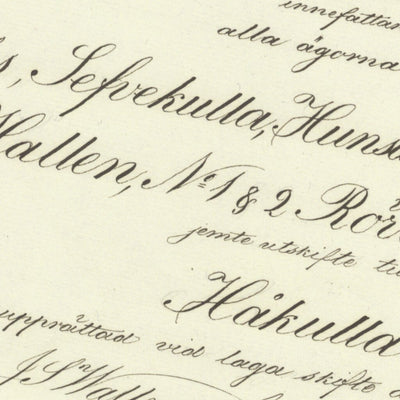 innefattan
alla ägorna
s, Sefvekulla, Huns
Hallen, No 1 & 2 Rör
jemte utskifte
Håkulla
upprättad vid laga skifte
J S Wall